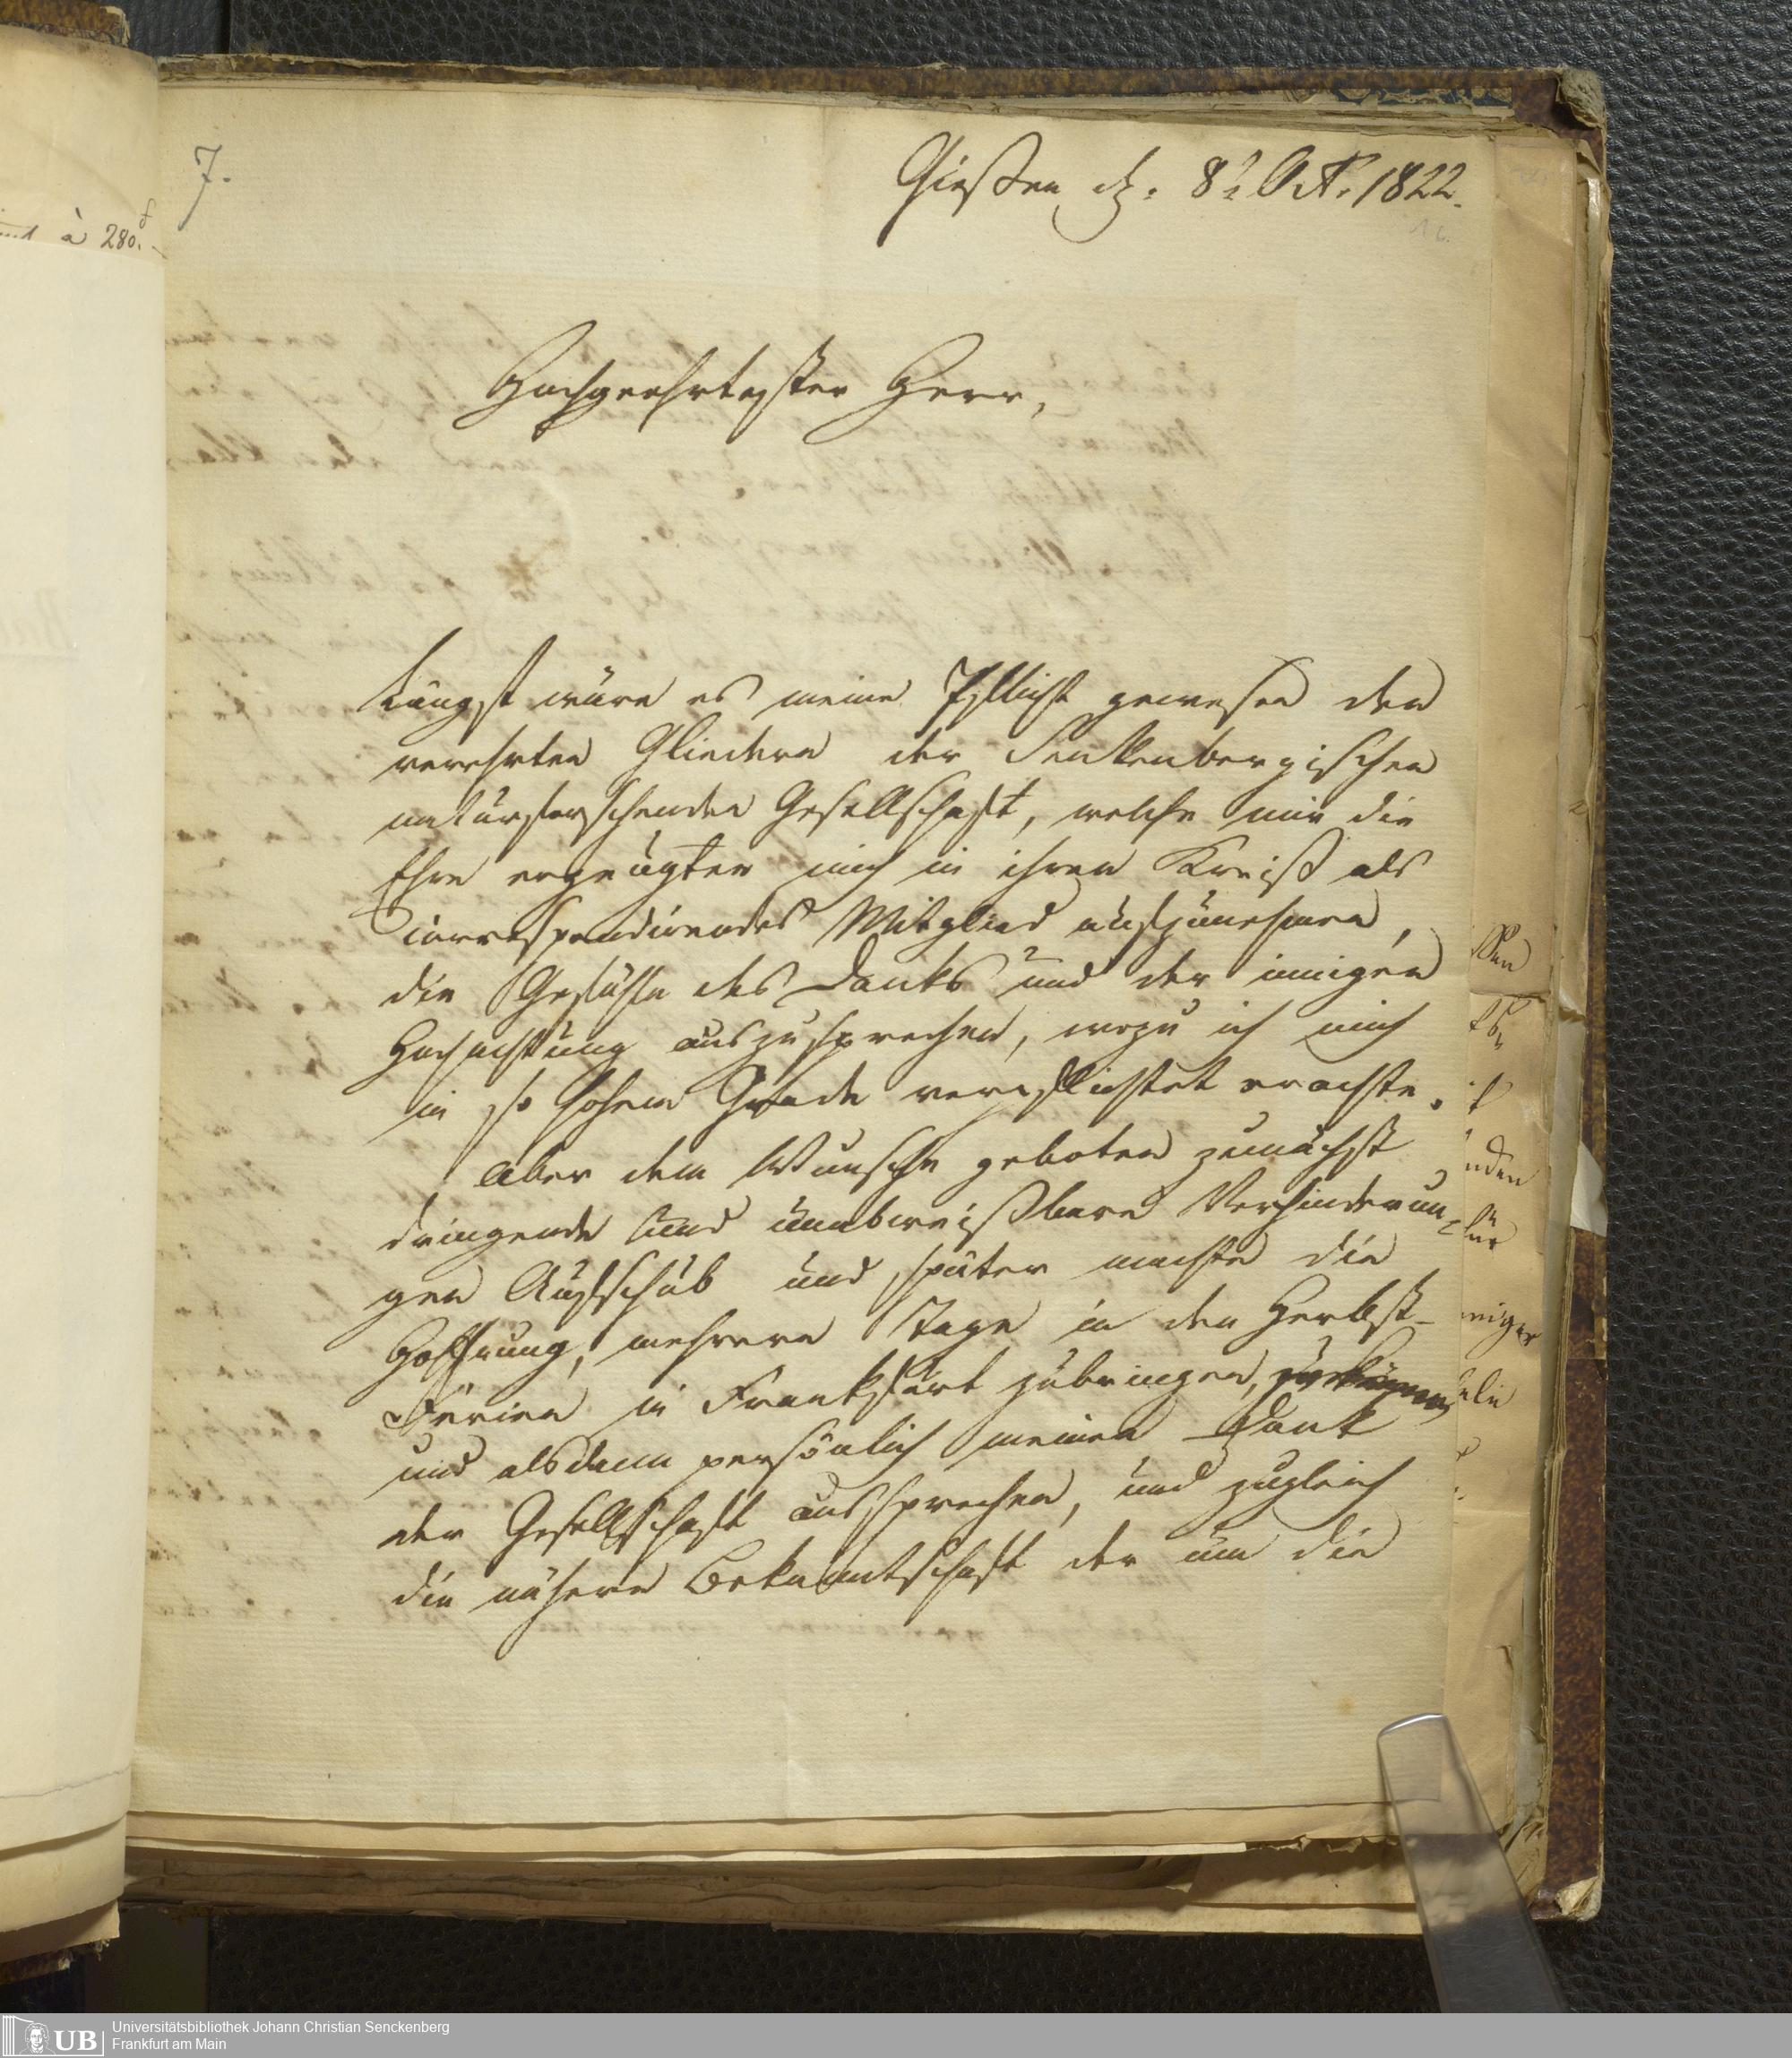 7.
Gießen d. 8t Oct. 1822.
Hochgeehrtester Herr,
Längst wäre es meine Pflicht gewesen den
verehrten Gliedern der Senkenbergischen
naturforschenden Gesellschaft, welche mir die
Ehre erzeugten mich in ihren Kreiß als
correspondirendes Mitglied aufzunehmen,
die Gefühle des Danks und der innigen
Hochachtung auszusprechen, wozu ich mich
in so hohem Grade verpflichtet erachte.
Aber dem Wunsche geboten zunächst
dringende und unabweißbare Verhinderun-
gen Aufschub und später machte die
Hoffnung, mehrere Tage in den Herbst-
Ferien in Frankfurt zubringen,
und alsdann persönlich meinen Dank
der Gesellschaft aussprechen, und zugleich
die nähere Bekanntschaft der um die
à 280.
Universitätsbibliothek Johann Christian Senckenberg
Frankfurt am Main
UB